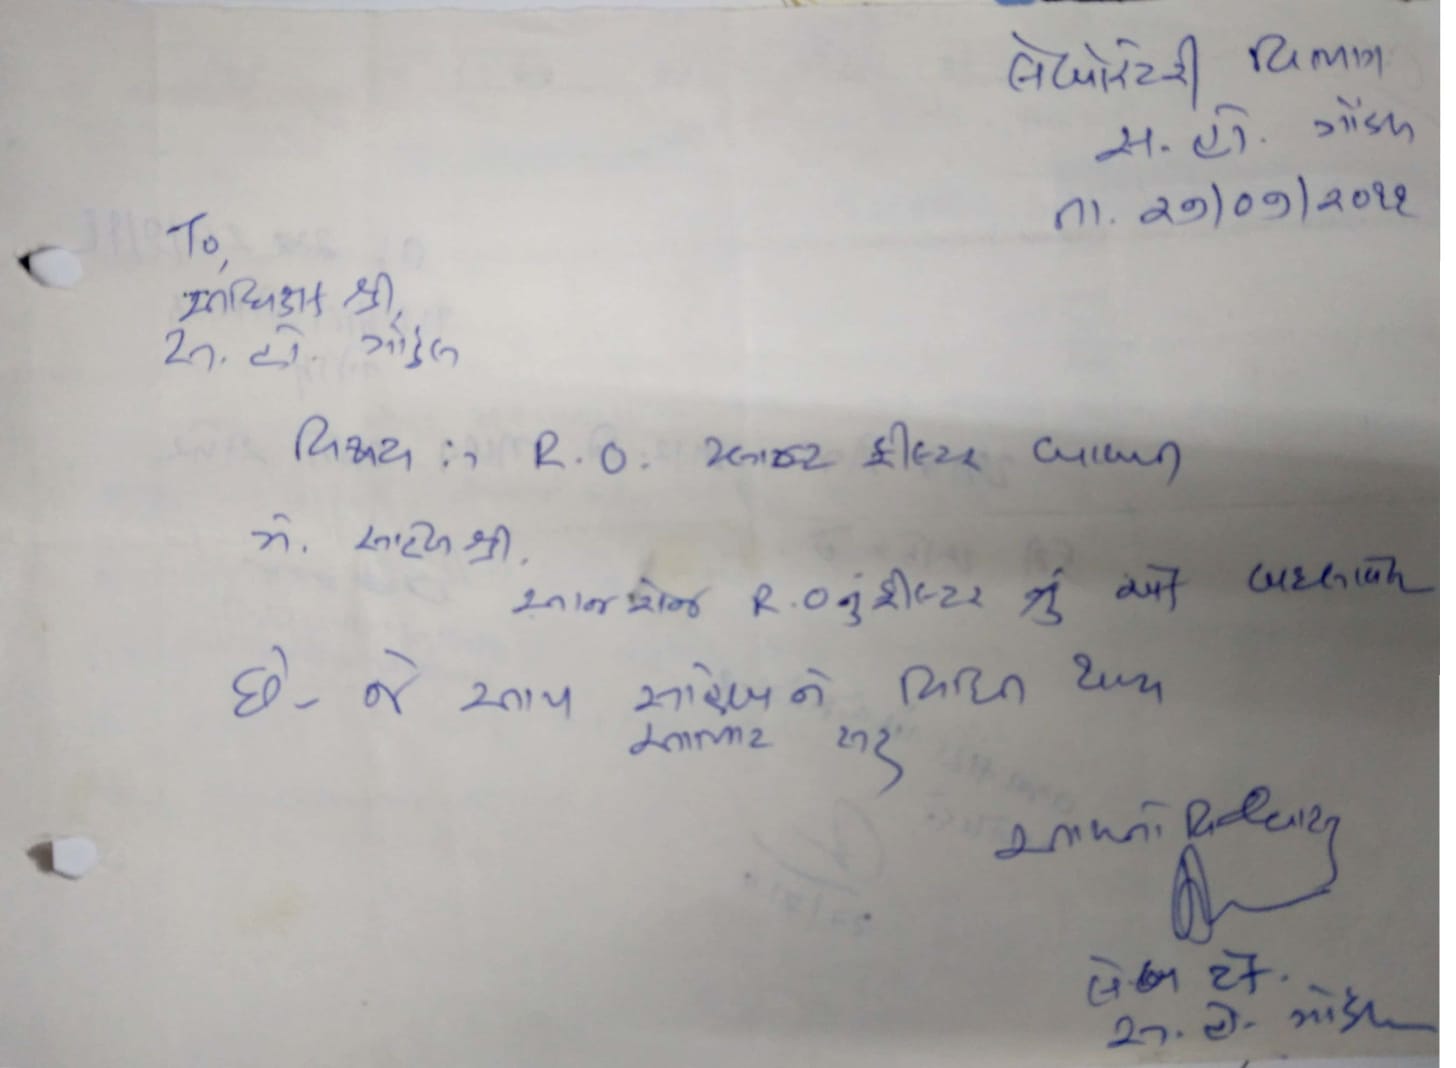 લેબોરેટરી વિભાગ
સ. હો. ગોંડલ
તા. ૨૭/૦૭/૨૦૨૨
To,
અધિક્ષક શ્રી,
સ. હો. ગોંડલ
વિષય :- R.O. વોટર ફીલ્ટર બાબત
મે. સાહેબ શ્રી.
આજરોજ R.O નું ફીલ્ટર નું
છે- જે આપ સાહેબ ને વિદિત થાય
આભાર સહ
આપનો વિશ્વાસુ
લેબ ટેક.
સ. હો. ગોંડલ